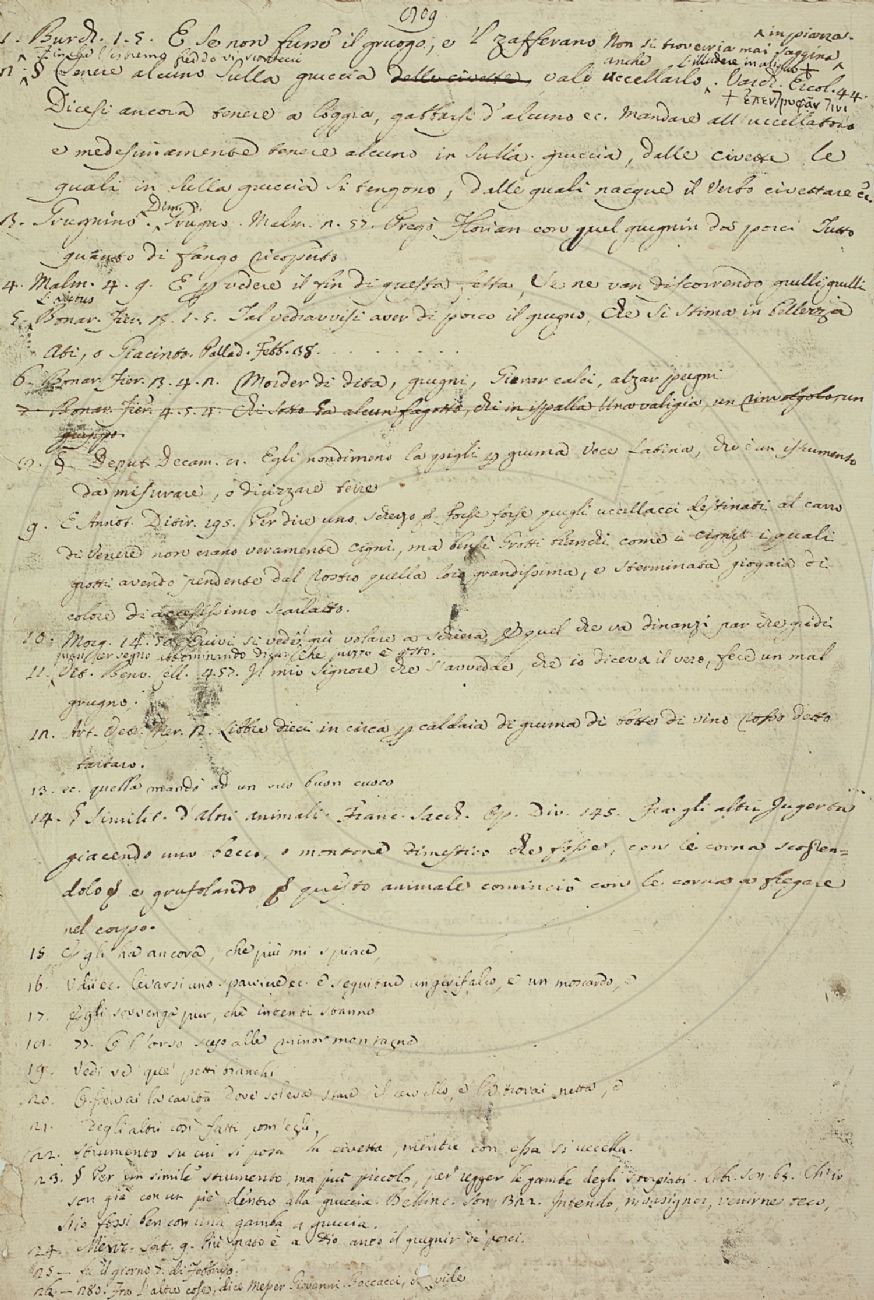 1. Burch. 1. 5. E se non fusse il gruogo, e 'l zafferano Non si troverria mai saggina ^ in pianza.
2. § Tenere alcuno sulla gruccia, vale anche uccellarlo. Varch. Ercol. 44.
Dicesi ancora tenere a loggia, gabbarsi d'alcuno ec. Mandare all'uccellatoio
e medesimamente tenere alcuno in sulla gruccia, dalle civette le
quali in sulla gruccia si tengono, dalle quali nacque il verbo civettare ec.
3. Grugnino. Dim. di Grugno. Malm. 2. 57. Pregò Florian con quel grugnin da porci Tutto
quanto di fango ricoperto
4. Malm. 4. 9. E per vedere il fin di questa festa, Se ne van discorrendo grulli grulli
5. Bonar. Fier. 1. 5. Tal vedravvisi aver di porco il grugno, Che si stima in bellezza
Ati, o Giacinto. Pallad. Febb. 38.
6. Bonar. Fier. 3. 4. 2. Morder di dita, grugni, Tirar calci, alzar pugni
7. Bonar. Fier. 4. 5. 4. Chi sotto ha alcun fagotto, chi in ispalla Una valigia, un rinvolgolo, un
gruppo.
§ Deput. Decam. Egli nondimeno la pigli per gruma voce Latina, che è un istrumento
da misurare, o dirizzare terre
9. E Annot. Ditir. 195. Per dire uno scherzo forse forse quegli uccellacci destinati al carro
di Venere non erano veramente cigni, ma bensì Grotti bianchi come i cigni i quali
grotti avendo pendente dal rostro quella loro grandissima, e sterminata giogaia di
colore di accesissimo scarlatto.
10. Morg. 14. Quivi si vede i gru volare a schiera, E quel che va dinanzi par che gridi
11. Vit. Benv. Cell. 457. Il mio Signore che s'avvedde, che io diceva il vero, fece un mal
grugno.
12. Art. Vetr. Ner. Libbre dieci in circa per caldaia di gruma di botte di vino rosso detto
tartaro.
13. ec. quella mandò ad un suo buon cuoco
14. § Similit. d'altri animali. Franc. Sacch. Op. Div. 145. Fra gli altri Jugerta
giacendo uno becco, o montone dimestico che fosse, con le corna scoten=
dolo e grufolando questo animale cominciò con le corna a fregare
nel corpo.
15. Egli ha ancora, che più mi spiace,
16. Vidi ec. levarsi uno sparviere ec. e seguitare un girifalco, e un moscardo, e
17. Egli sovvenga pur, che intenti stanno
E l'orso scese alle minor montagne
19. Vedi ve que' petti bianchi
20. la cavità dove soleva stare il cervello, e la trovai netta, e
21. Degli altri così fatti pom'egli,
22. Strumento su cui si posa la civetta, mentre con essa si uccella.
23. § Per un simile strumento, ma più piccolo, per regger le gambe degli storpiati. Lib. Son. 65. Ch'io
son già con un piè dentro alla gruccia. Bellinc. Son. 322. Intendo, monsignor, venirne teco,
S'io fossi ben con una gamba a gruccia.
24. Menz. Sat. 9. Più grato è a Dio anco il grugnir de' porci.
25. — fu il giorno 7. di Febbraio.
26. — 280. Fra l'altre cose, dice Messer Giovanni Boccacci, che vide